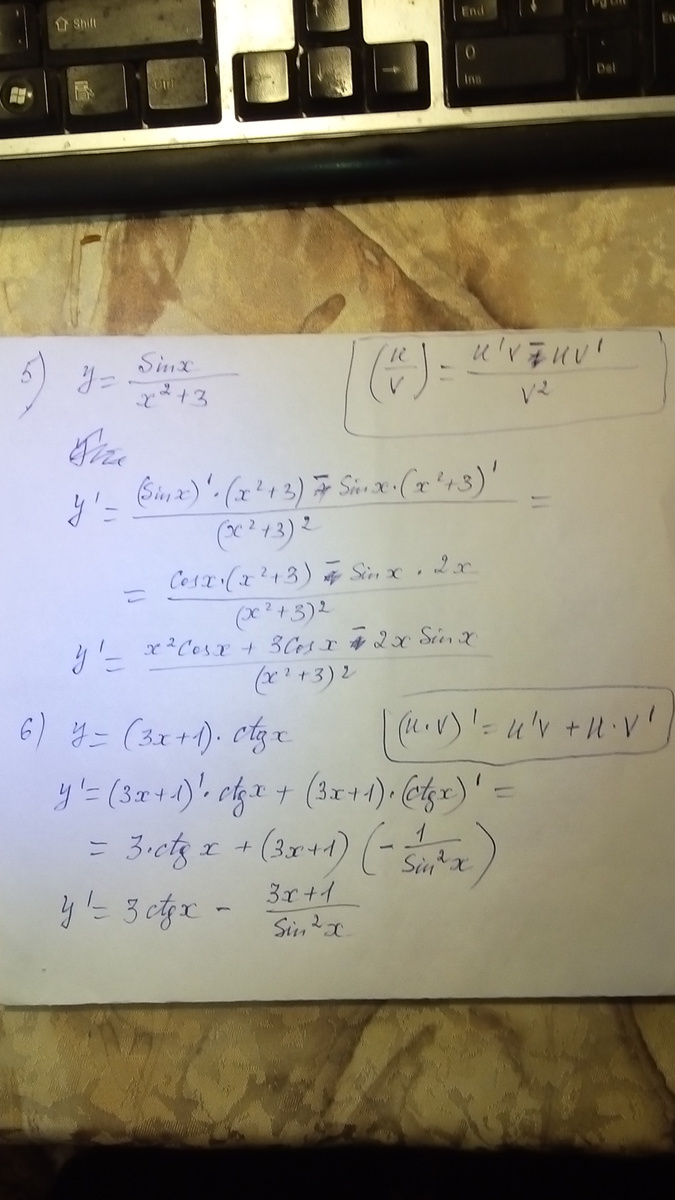 Shift
End
↓
Pg Dn
Ctrl
↓
→
0
Ins
Del
5) y = sinx / (x²+3)
(u/v) = (u'v - uv') / v²
y' = ((sinx)'·(x²+3) - sinx·(x²+3)') / (x²+3)² =
= (cosx·(x²+3) - sinx · 2x) / (x²+3)²
y' = (x²cosx + 3cosx - 2x sinx) / (x²+3)²
6) y = (3x+1)· ctgx
(u·v)' = u'v + u·v'
y' = (3x+1)'·ctgx + (3x+1)·(ctgx)' =
= 3·ctg x + (3x+1) (- 1/sin²x)
y' = 3ctgx - (3x+1)/sin²x